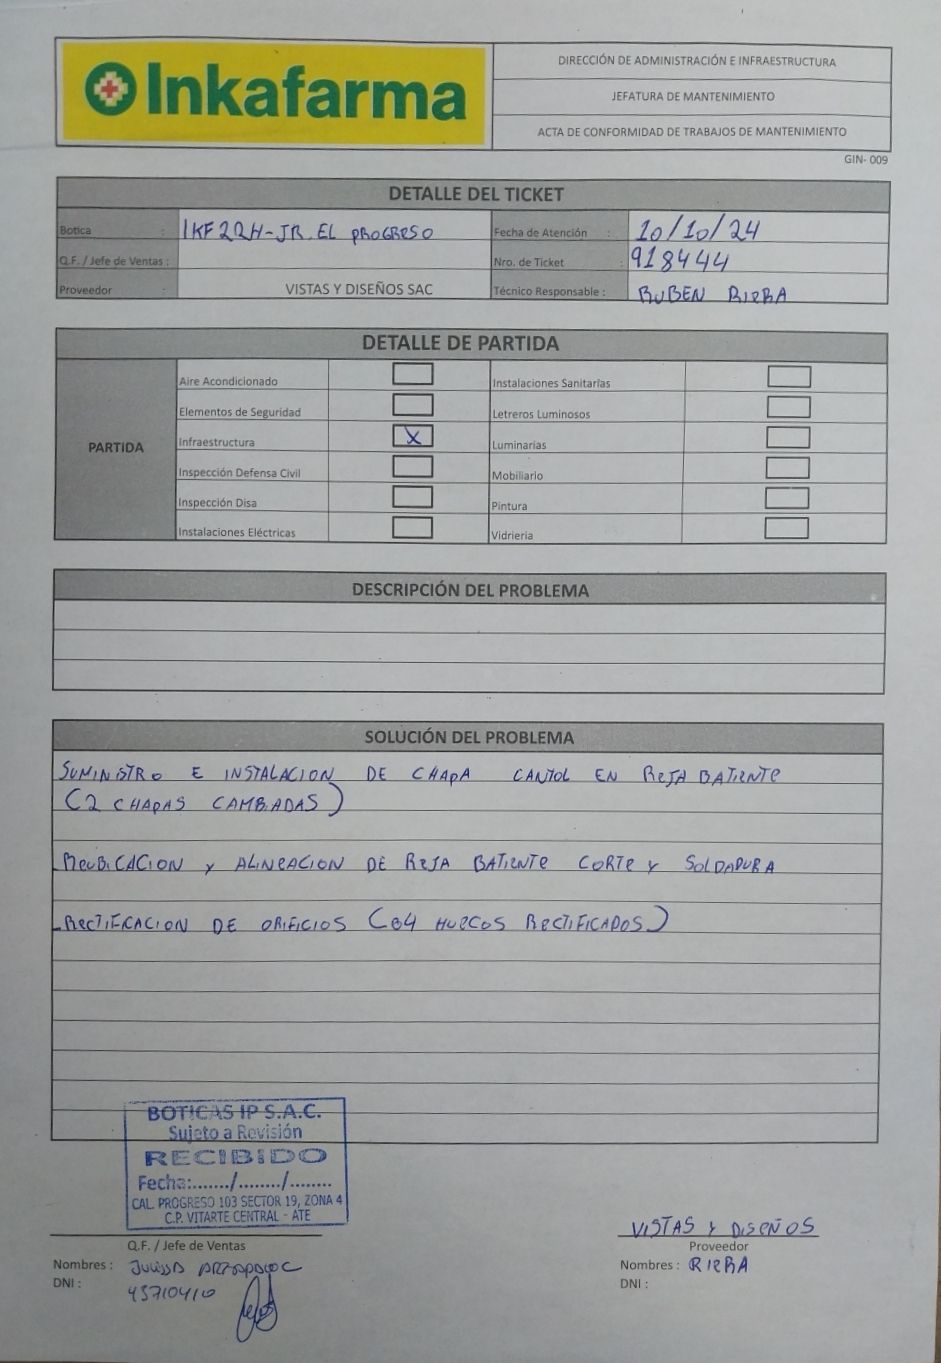 Inkafarma
DIRECCIÓN DE ADMINISTRACIÓN E INFRAESTRUCTURA
JEFATURA DE MANTENIMIENTO
ACTA DE CONFORMIDAD DE TRABAJOS DE MANTENIMIENTO
GIN- 009
DETALLE DEL TICKET
Botica : IKF22H-JR. EL PROGRESO Fecha de Atención : 10/10/24
Q.F. / Jefe de Ventas : Nro. de Ticket : 918444
Proveedor : VISTAS Y DISEÑOS SAC Técnico Responsable : RUBEN RIERA
DETALLE DE PARTIDA
PARTIDA
Aire Acondicionado Instalaciones Sanitarias
Elementos de Seguridad Letreros Luminosos
Infraestructura X Luminarias
Inspección Defensa Civil Mobiliario
Inspección Disa Pintura
Instalaciones Eléctricas Vidrieria
DESCRIPCIÓN DEL PROBLEMA
SOLUCIÓN DEL PROBLEMA
SUMINISTRO E INSTALACION DE CHAPA CANTOL EN REJA BATIENTE
(2 CHAPAS CAMBIADAS)
REUBICACION Y ALINEACION DE REJA BATIENTE CORTE Y SOLDADURA
RECTIFICACION DE ORIFICIOS (04 HUECOS RECTIFICADOS)
BOTICAS IP S.A.C.
Sujeto a Revisión
RECIBIDO
Fecha:......./......../........
CAL. PROGRESO 103 SECTOR 19, ZONA 4
C.P. VITARTE CENTRAL - ATE
Q.F. / Jefe de Ventas
Nombres : Julissa
DNI : 43710410
VISTAS Y DISEÑOS
Proveedor
Nombres : RIERA
DNI :